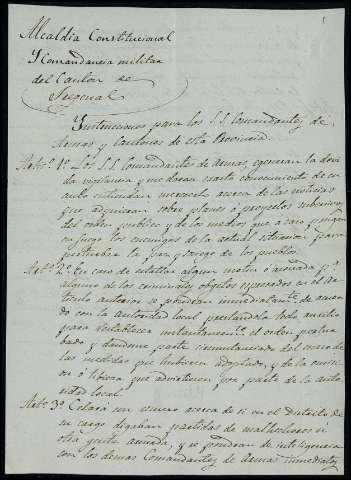 1
Alcaldia Constitucional
Y Comandancia militar
del Canton de
Fregenal
Ynstrucciones para los S.S. Comandantes de
Armas y Cantones de esta Provincia.
Arto. 1º Los S.S. Comandantes de armas, egerceran la devi
da vigilancia y me daran exacto conocimiento de cu
anto entiendan merecerlo acerca de las noticias
que adquieran sobre planes ó proyectos subersivos
del orden publico y de los medios que a caso pongan
en juego los enemigos de la actual situacion para
perturbar la paz y sosiego de los pueblos.
Arto. 2º En caso de estallar algun motin ó asonada pª.
alguno de los criminales objetos espresados en el Ar
ticulo anterior se pondran inmediatamte. de acuer
do con la autoridad local prestandola todo auxilio
para restablecer instantaneamte. el orden pertur
bado y dandome parte circunstanciado del suceso de
las medidas que hubiesen adoptado, y de la omision
ó tibieza que advirtiesen por parte de la auto
ridad local.
Arto. 3º Celará con esmero acerca de si en el Distrito de
su cargo divagan partidas de malhechores ú
otra gente armada, y se pondran de inteligencia
con los demas Comandantes de Armas inmediatos